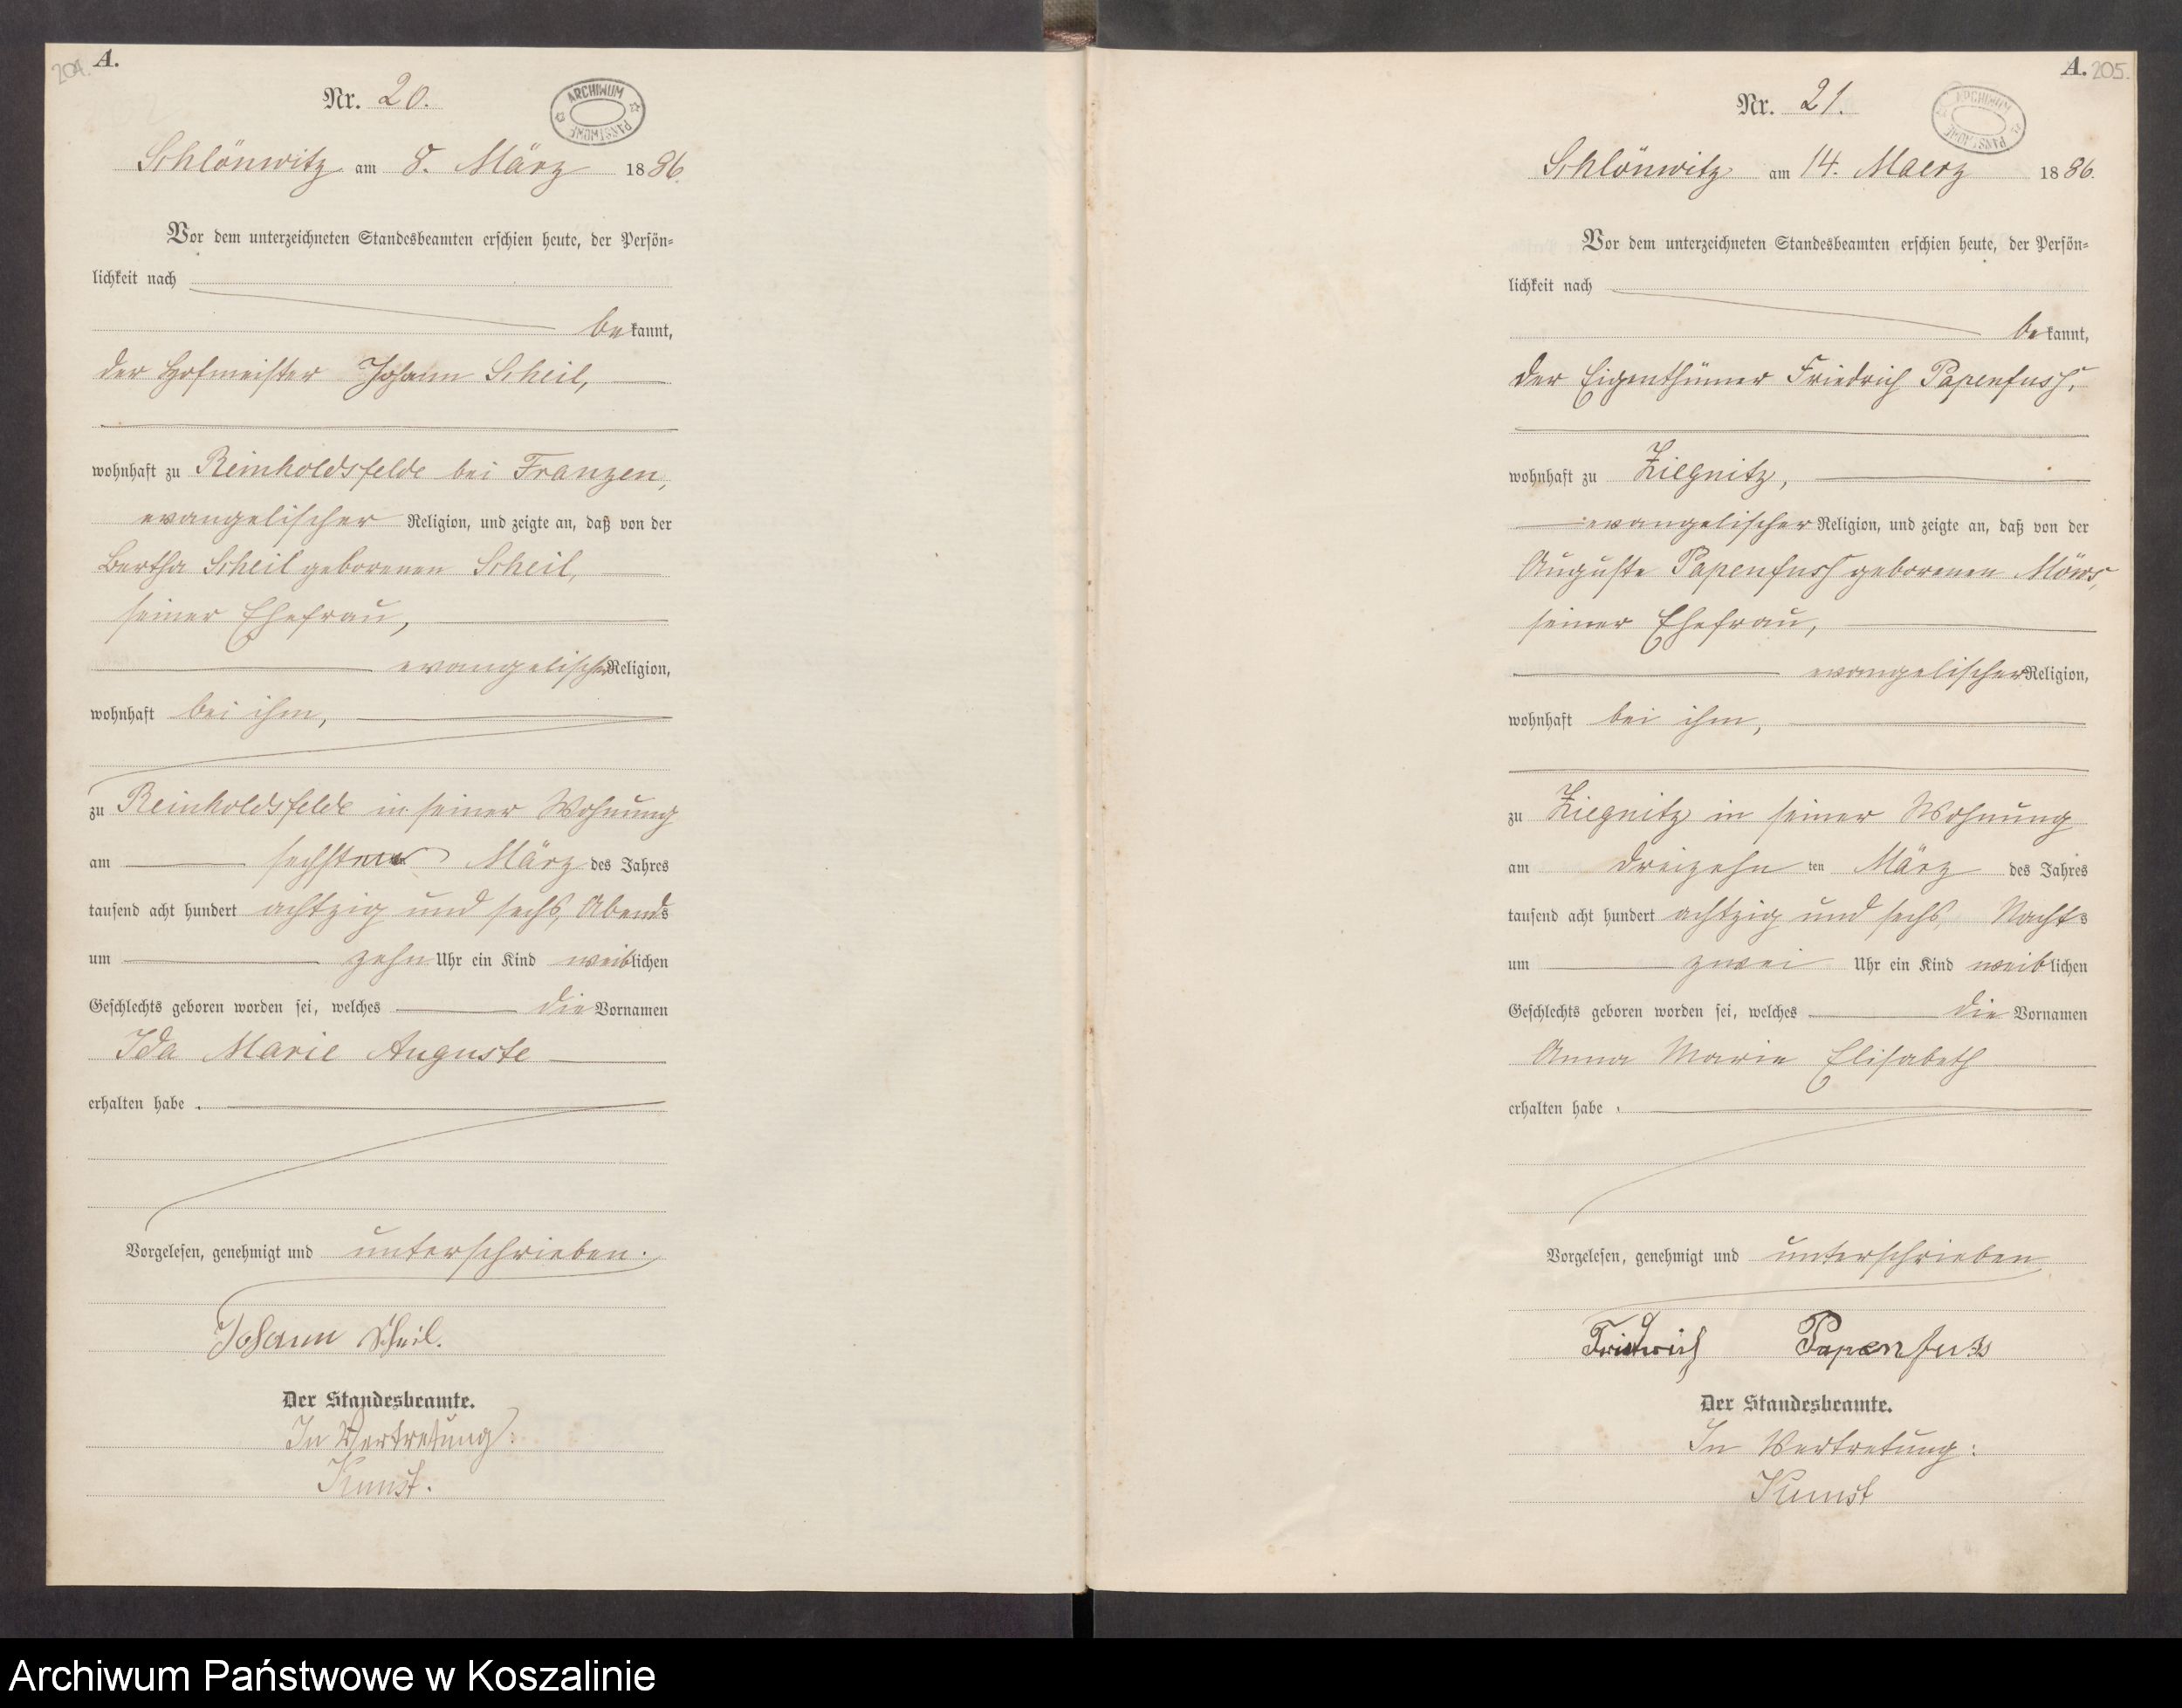 204.
A.
Nr. 20.
ARCHIWUM PAŃSTWOWE
Schlönwitz am 8. März 1886.
Vor dem unterzeichneten Standesbeamten erschien heute, der Persön-
lichkeit nach
bekannt,
der Hofmeister Johann Scheil,
wohnhaft zu Reinholdsfelde bei Franzen,
evangelischer Religion, und zeigte an, daß von der
Bertha Scheil geborenen Scheil,
seiner Ehefrau,
evangelischer Religion,
wohnhaft bei ihm,
zu Reinholdsfelde in seiner Wohnung
am sechsten März des Jahres
tausend acht hundert achtzig und sechs, Abends
um zehn Uhr ein Kind weiblichen
Geschlechts geboren worden sei, welches die Vornamen
Ida Marie Auguste
erhalten habe.
Vorgelesen, genehmigt und unterschrieben.
Johann Scheil.
Der Standesbeamte.
In Vertretung:
Kunst.
A. 205.
Nr. 21.
ARCHIWUM PAŃSTWOWE
Schlönwitz am 14. Maerz 1886.
Vor dem unterzeichneten Standesbeamten erschien heute, der Persön-
lichkeit nach
bekannt,
der Eigenthümer Friedrich Papenfuss,
wohnhaft zu Ziegnitz,
evangelischer Religion, und zeigte an, daß von der
Auguste Papenfuss geborenen Möws,
seiner Ehefrau,
evangelischer Religion,
wohnhaft bei ihm,
zu Ziegnitz in seiner Wohnung
am dreizehn ten März des Jahres
tausend acht hundert achtzig und sechs, Nachts
um zwei Uhr ein Kind weiblichen
Geschlechts geboren worden sei, welches die Vornamen
Anna Marie Elisabeth
erhalten habe.
Vorgelesen, genehmigt und unterschrieben
Friedrich Papenfuss
Der Standesbeamte.
In Vertretung:
Kunst
Archiwum Państwowe w Koszalinie